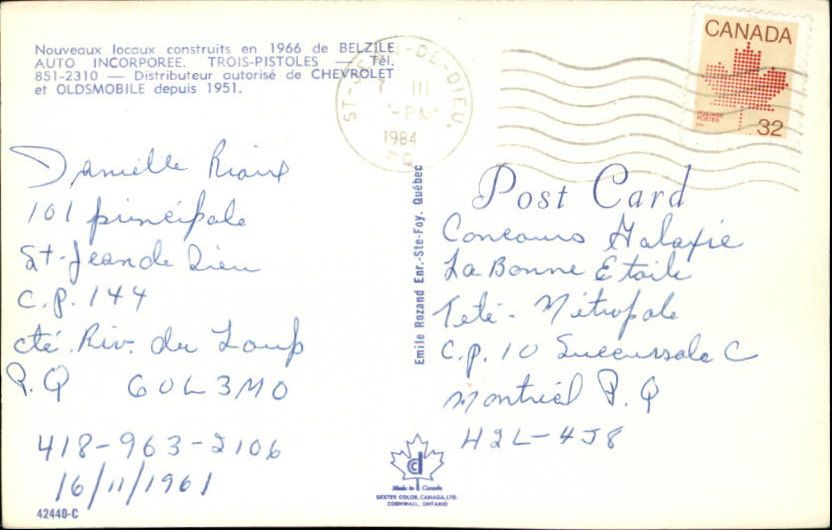 Nouveaux locaux construits en 1966 de BELZILE
AUTO INCORPOREE. TROIS-PISTOLES — Tél.
851-2310 — Distributeur autorisé de CHEVROLET
et OLDSMOBILE depuis 1951.
ST-JEAN-DE-DIEU,
7 III
PM
1984
P.Q.
CANADA
POSTAGE
POSTES
32
Danielle Rioux
101 principale
St-Jean de Dieu
C.P. 144
cté. Riv. du Loup
P.Q G0L3M0
418-963-2106
16/11/1961
42440-C
Emile Rozand Enr.-Ste-Foy, Québec
Post Card
Concours Galaxie
La Bonne Etoile
Télé-Métropole
C.P. 10 Succursale C
Montréal P.Q
H2L-4J8
Made in Canada
DEXTER COLOR, CANADA, LTD.
CORNWALL, ONTARIO